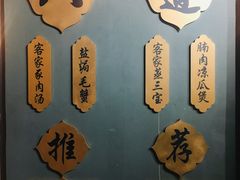 道
客家豕肉汤
焗毛蟹
客家蒸三宝
腩肉凉瓜煲
推荐